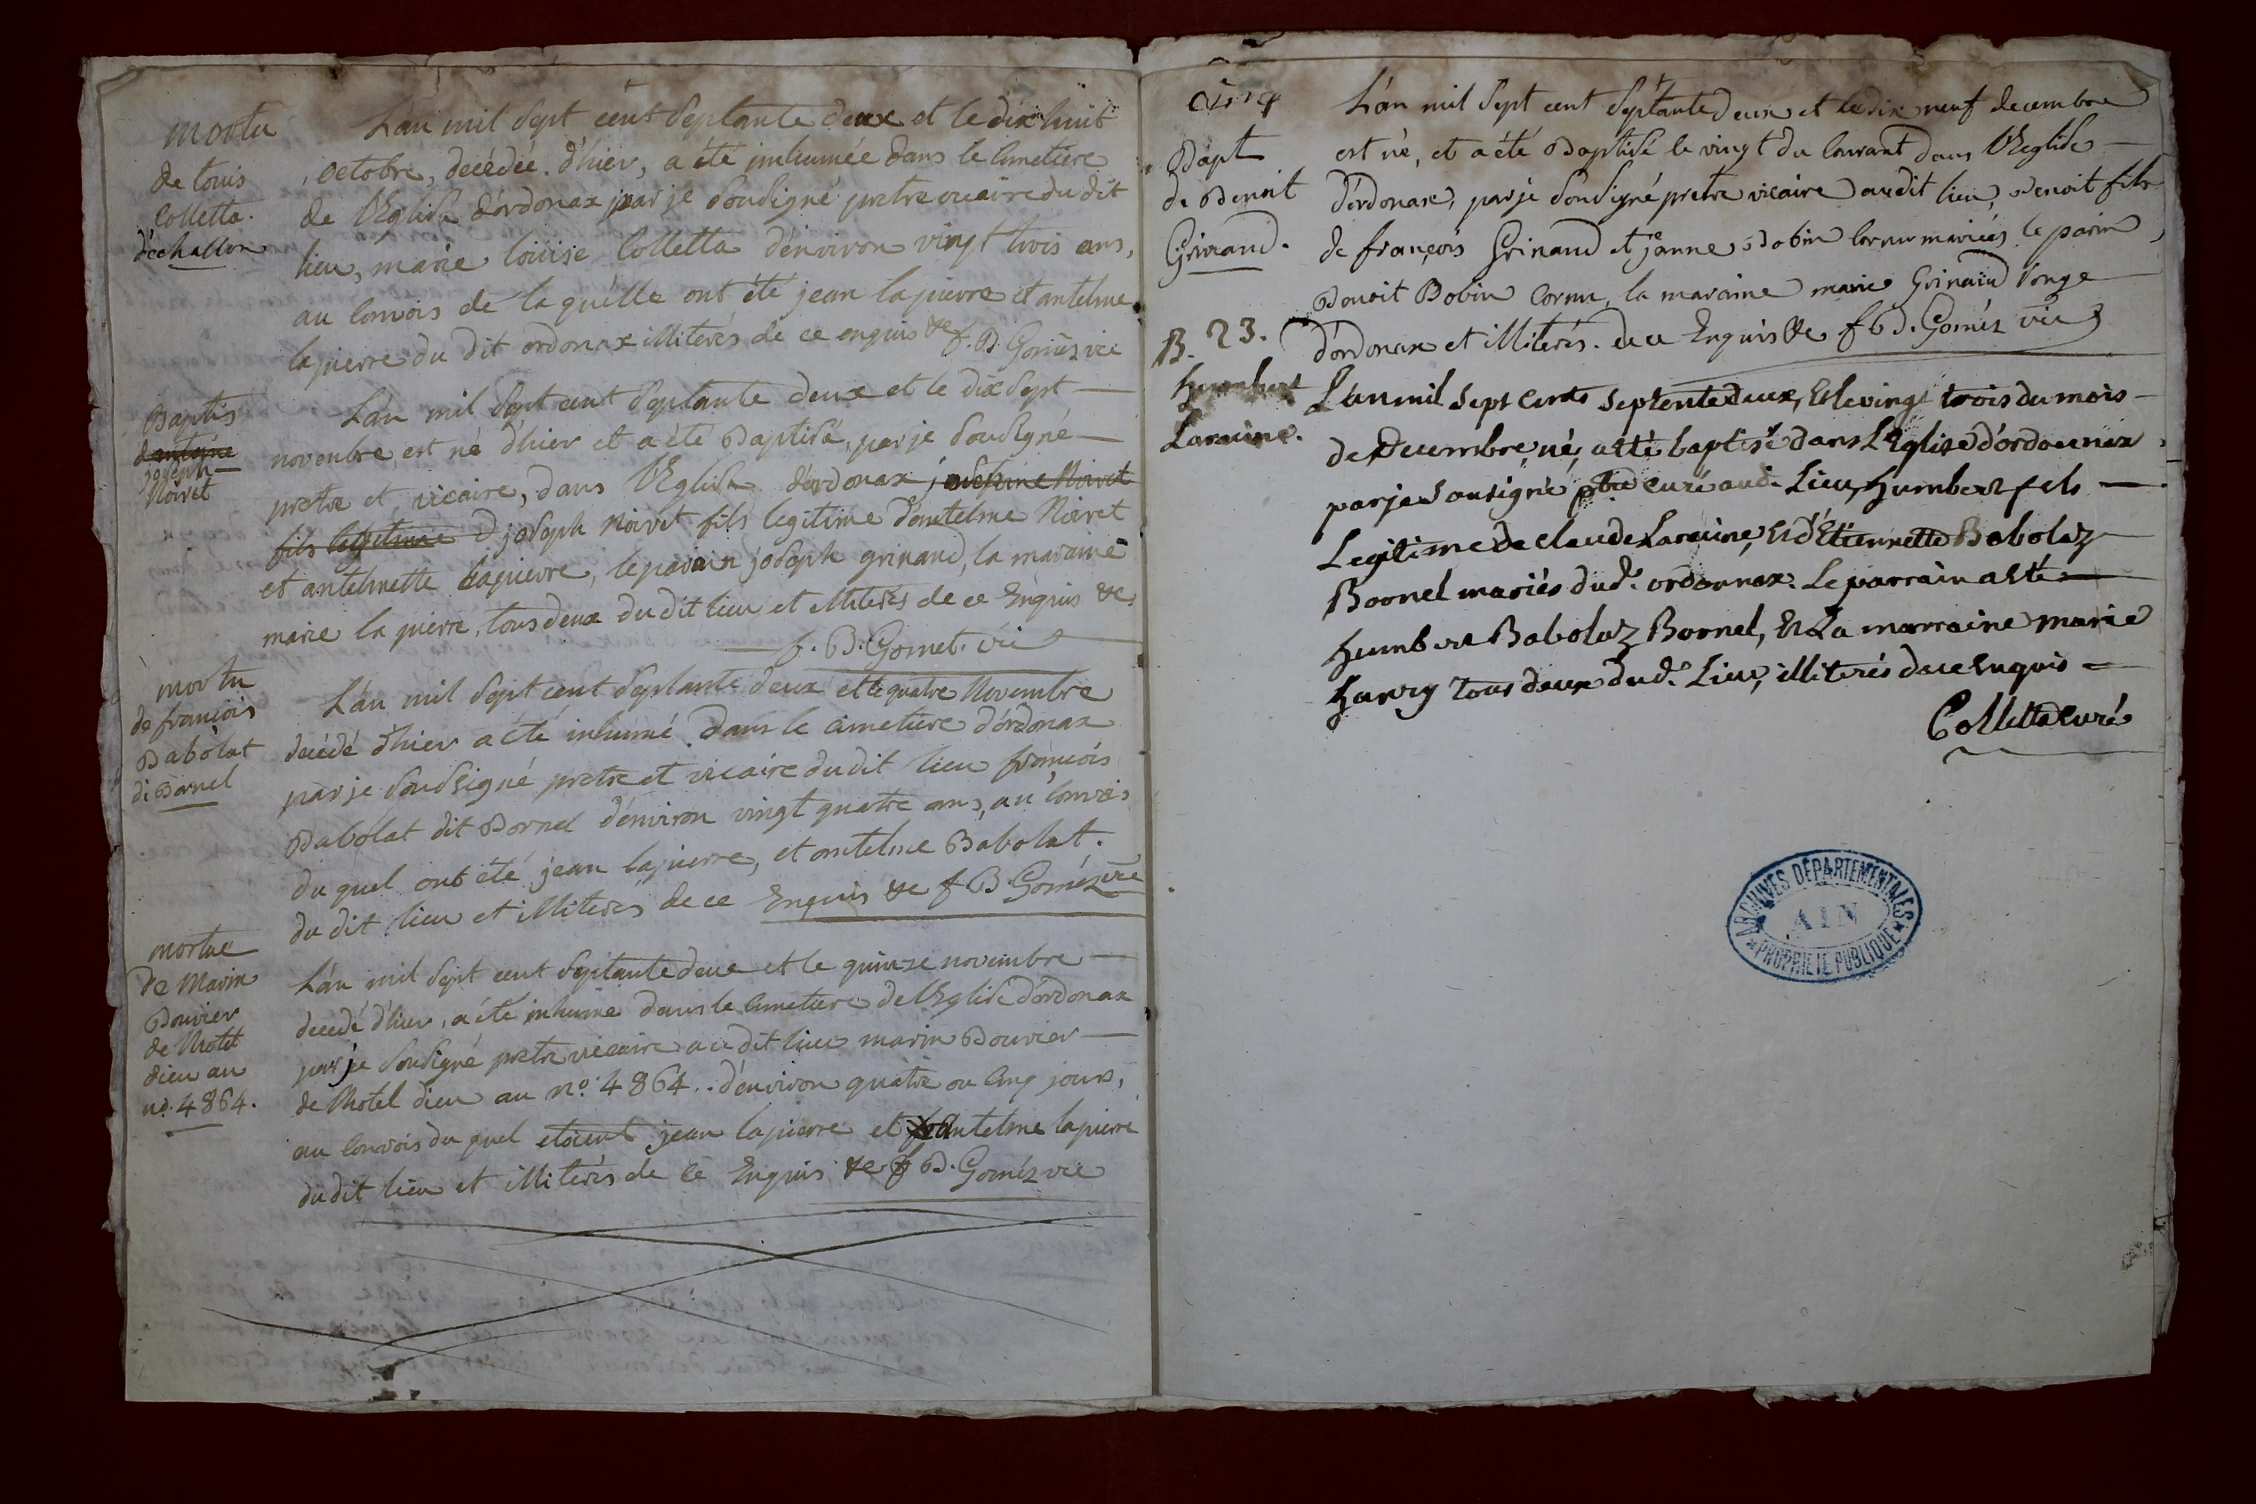 mortu
de louis
Colletta.
d'echallon
L'an mil sept cent septante deux et le dix huit
octobre, decédée d'hier, a été inhumée dans le Cimetiere
de l'Eglise d'ordonax par je soussigné pretre vicaire du dit
lieu, marie louise Colletta d'environ vingt trois ans,
au Convois de la quelle ont été jean lapierre et antelme
lapierre du dit ordonax illiterés de ce enquis &c f. B. Goméz vic
Baptis
d'antoine
joseph
Noivet
L'an mil sept cent septante deux et le dix sept
novembre est né d'hier et a été Baptisé, par je soussigné
pretre et vicaire, dans l'Eglise d'ordonax Noivet
fils legitime D joseph Noivet fils legitime d'antelme Noivet
et antelmette lapierre, le parain joseph grinand, la maraine
marie la pierre, tous deux du dit lieu et illiterés de ce Enquis &c
f. B. Gomet. vic
mortu
de françois
Babolat
di Bornel
L'an mil sept cent septante deux et le quatre Novembre
decédé d'hier a été inhumé dans le cimetiere d'ordonax
par je soussigné pretre et vicaire du dit lieu françois
Babolat dit Bornel d'environ vingt quatre ans, au Convois
du quel ont été jean lapierre, et antelme Babolat.
du dit lieu et illiterés de ce Enquis &c f B. Goméz vic
mortue
de Marin
Bouvier
de l'hotel
dieu au
no. 4864.
L'an mil sept cent septante deux et le quinze novembre
decedé d'hier, a été inhumé dans le Cimetiere de l'Eglise d'ordonax
par je soussigné pretre vicaire au dit lieu marin Bouvier
de l'hotel dieu au no. 4864.. d'environ quatre ou Cinq jours,
au Convois du quel etoient jean lapierre et antelme lapierre
du dit lieu et illiterés de ce Enquis &c f B. Goméz vic
Cinq
Bapt
de Benoit
Grinand.
L'an mil sept cent septante deux et le dix neuf decembre
est né, et a été Baptisé le vingt du Courant dans l'Eglise
d'ordonax, par je soussigné pretre vicaire audit lieu, Benoit fils
de françois Grinand et jeanne Bobin Cornu mariés le parin
Benoit Bobin Cornu, la maraine marie Grinand Vonge
d'ordonax et illiterés. de ce Enquis &c f B. Goméz vic
B. 23.
humbert
Laraine.
L'an mil sept cents septente deux, Et le vingt trois du mois
de Decembre, né, a été baptisé dans L'Eglise d'ordonnax
par je sousigné ptre curé aud. Lieu, humbert fils
Legitime de claude Laraine, Et d'Etiennette Babolaz
Bornel mariés dud. ordonnax. Le parrain a été
humbert Babolaz Bornel, Et La marraine marie
hanry tous deux dud. Lieu, illiterés de ce enquis
Colletta curé
ARCHIVES DÉPARTEMENTALES
AIN
* PROPRIÉTÉ PUBLIQUE *